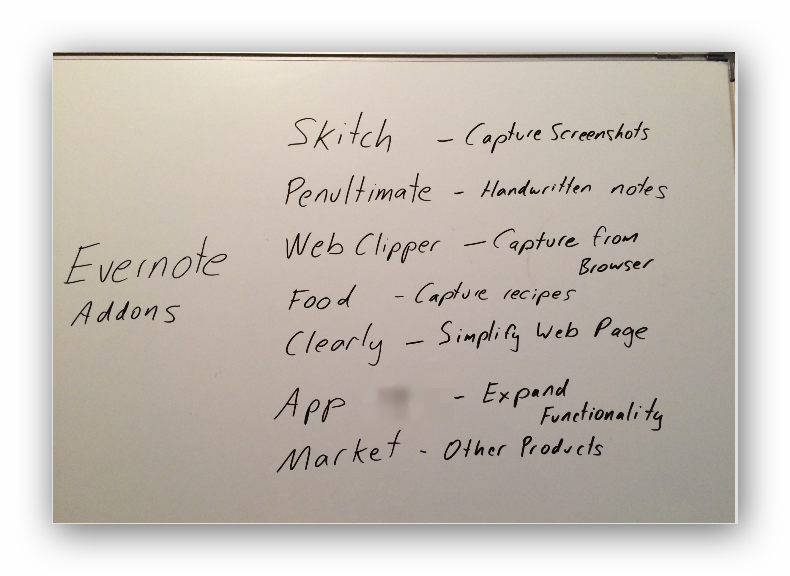 Evernote
Addons
Skitch - Capture Screenshots
Penultimate - Handwritten notes
Web Clipper - Capture from
Browser
Food - Capture recipes
Clearly - Simplify Web Page
App - Expand
Functionality
Market - Other Products